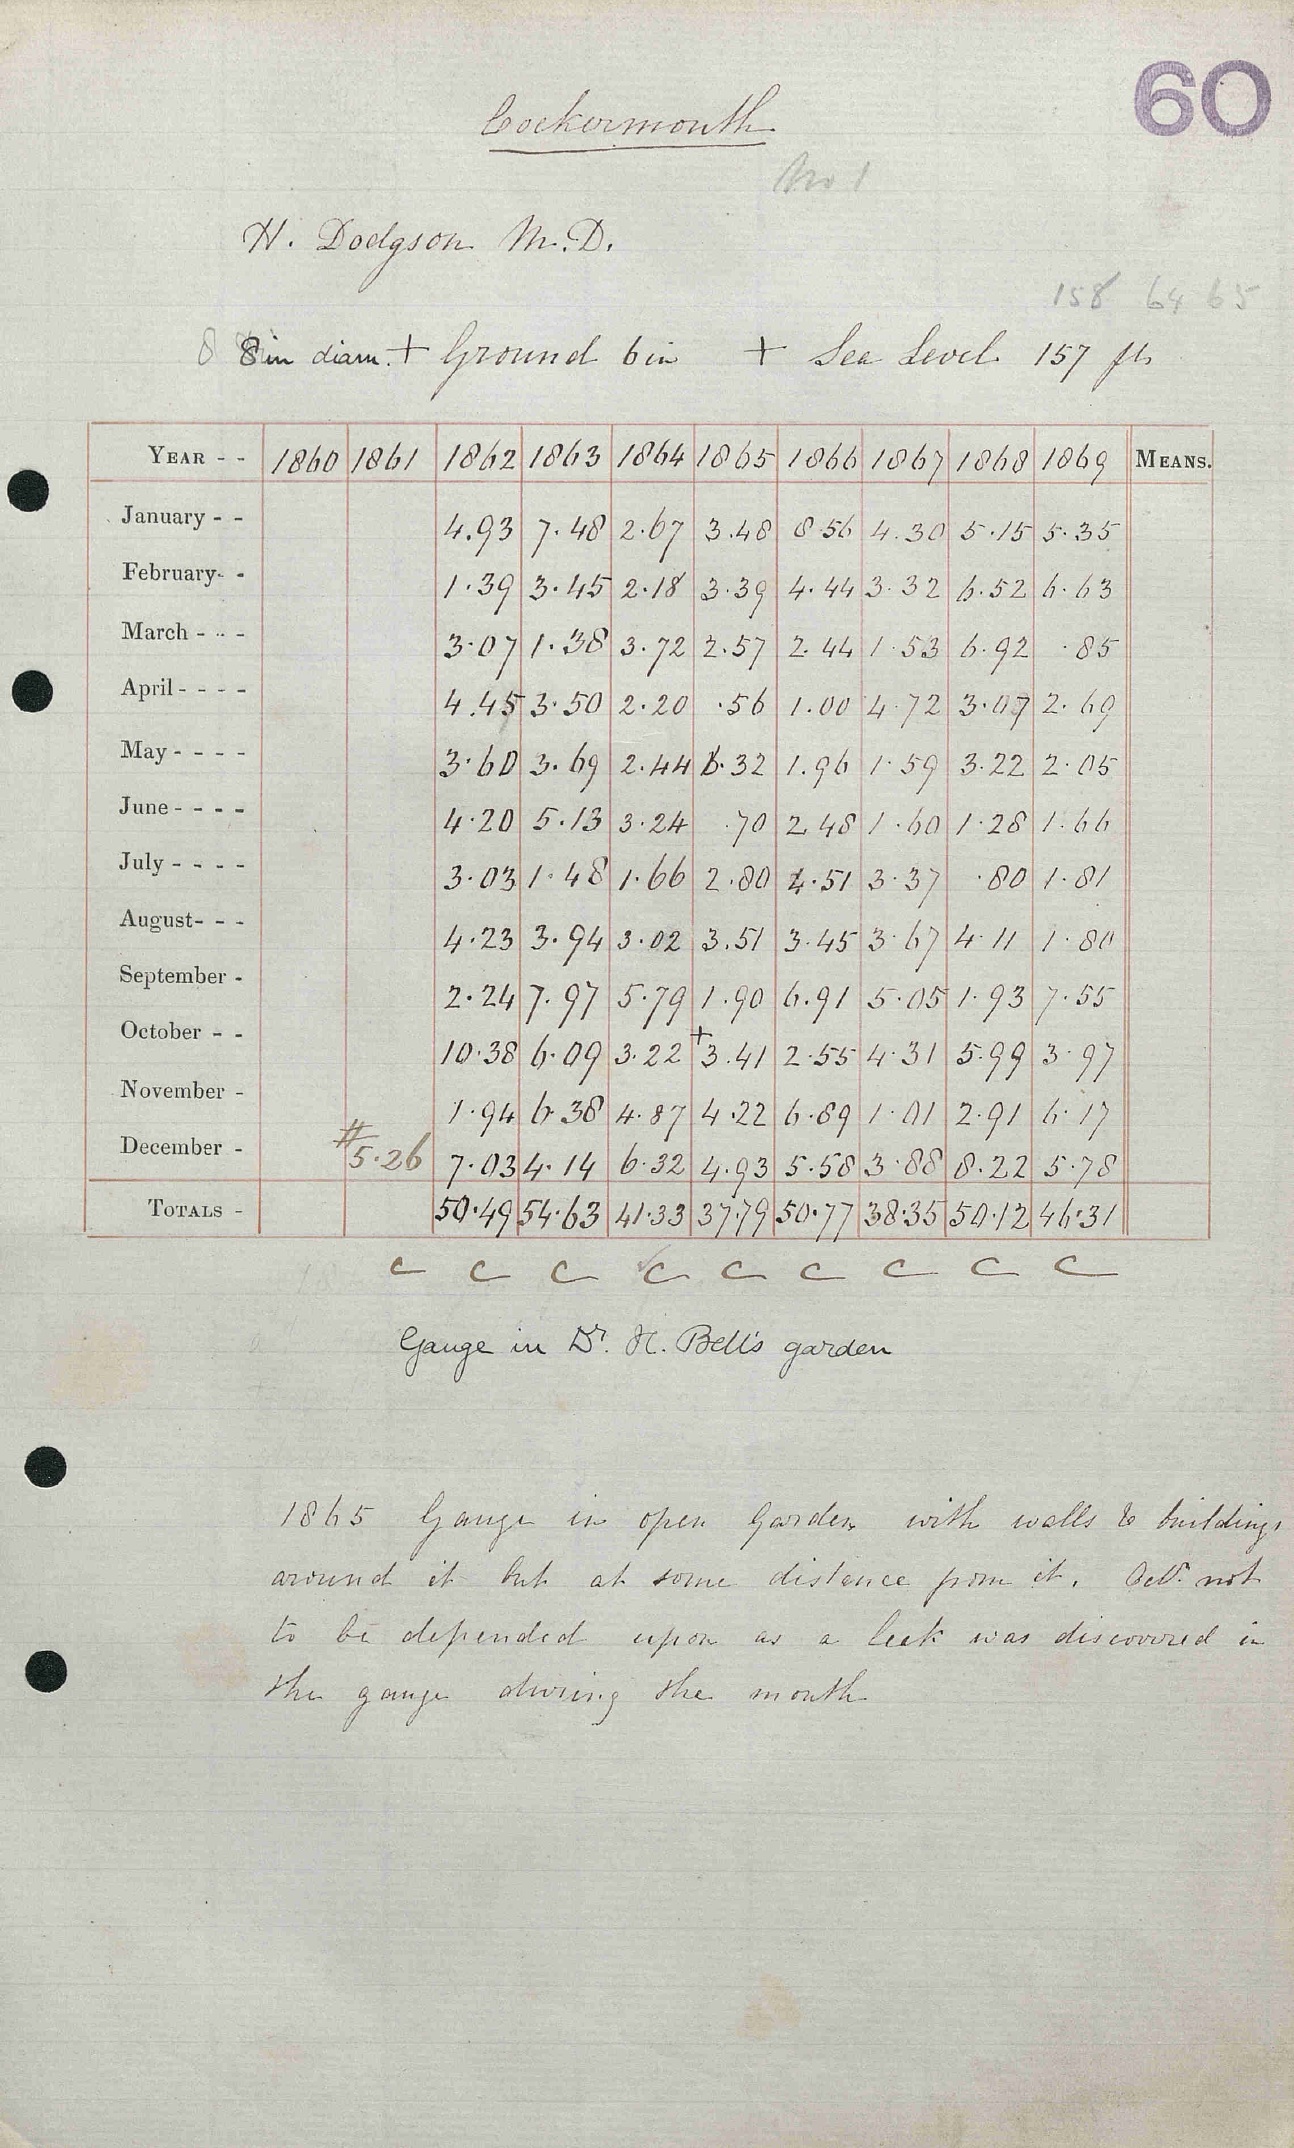 60
Cockermouth
No 1
H. Dodgson M.D.
158 64 65
8 8in diam. + Ground 6 in + Sea Level 157 ft
YEAR - - 1860 1861 1862 1863 1864 1865 1866 1867 1868 1869 MEANS.
January - - 4.93 7.48 2.67 3.48 8.56 4.30 5.15 5.35
February - - 1.39 3.45 2.18 3.39 4.44 3.32 6.52 6.63
March - - - 3.07 1.38 3.72 2.57 2.44 1.53 6.92 .85
April - - - - 4.45 3.50 2.20 .56 1.00 4.72 3.07 2.69
May - - - - 3.60 3.69 2.44 6.32 1.96 1.59 3.22 2.05
June - - - - 4.20 5.13 3.24 .70 2.48 1.60 1.28 1.66
July - - - - 3.03 1.48 1.66 2.80 4.51 3.37 .80 1.81
August - - - 4.23 3.94 3.02 3.51 3.45 3.67 4.11 1.80
September - 2.24 7.97 5.79 1.90 6.91 5.05 1.93 7.55
October - - 10.38 6.09 3.22 +3.41 2.55 4.31 5.99 3.97
November - 1.94 6.38 4.87 4.22 6.89 1.01 2.91 6.17
December - #5.26 7.03 4.14 6.32 4.93 5.58 3.88 8.22 5.78
TOTALS - 50.49 54.63 41.33 37.79 50.77 38.35 50.12 46.31
c c c c c c c c c
Gauge in Dr. H. Bell's garden
1865 Gauge in open Garden with walls & buildings
around it but at some distance from it. Octr. not
to be depended upon as a leak was discovered in
the gauge during the month